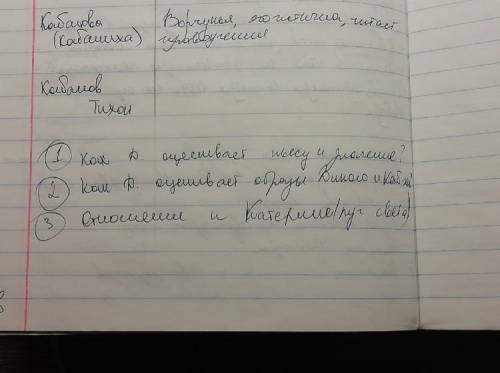 Кабанова Ворчунья, эгоистична, читает
(Кабаниха) нравоучения
Кабанов
Тихон
1 Как Д. оценивает пьесу и значение?
2 Как Д. оценивает образы Дикого и Кабан
3 Отношение к Катерине (луч света)